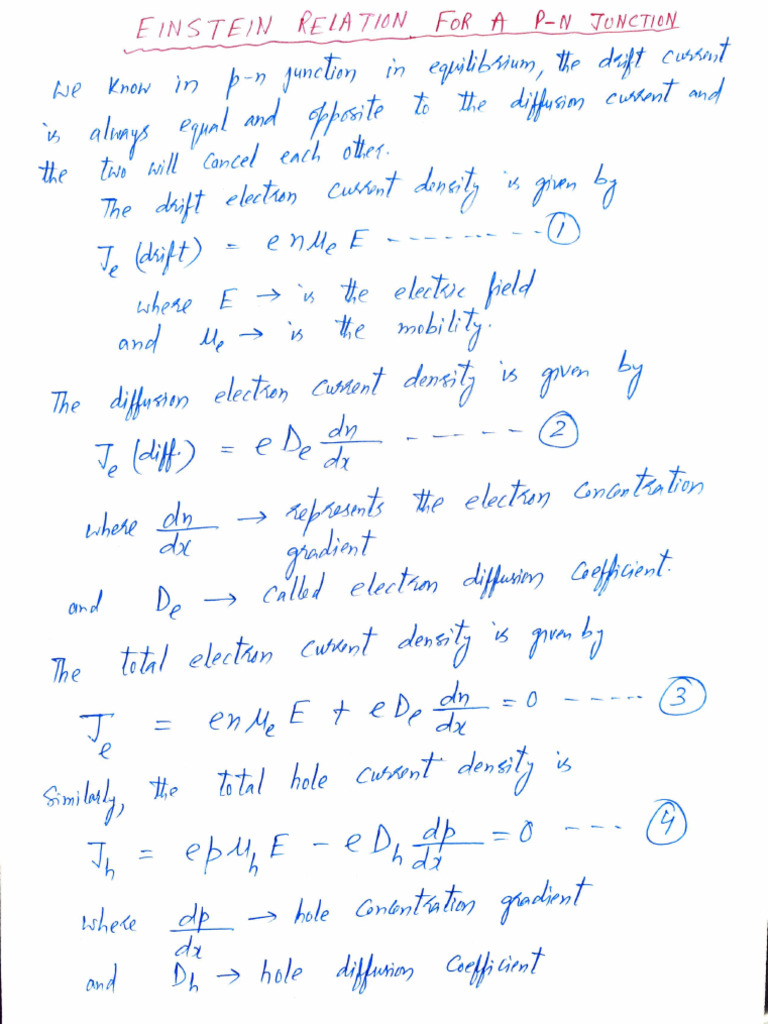 EINSTEIN RELATION FOR A P-N JUNCTION
We know in p-n junction in equilibrium, the drift current
is always equal and opposite to the diffusion current and
the two will cancel each other.
The drift electron current density is given by
J_e (drift) = e n μ_e E --------- ①
where E → is the electric field
and μ_e → is the mobility.
The diffusion electron current density is given by
J_e (diff.) = e D_e dn/dx ------ ②
where dn/dx → represents the electron concentration
gradient
and D_e → called electron diffusion coefficient.
The total electron current density is given by
J_e = e n μ_e E + e D_e dn/dx = 0 ----- ③
Similarly, the total hole current density is
J_h = e p μ_h E - e D_h dp/dx = 0 --- ④
where dp/dx → hole concentration gradient
and D_h → hole diffusion coefficient